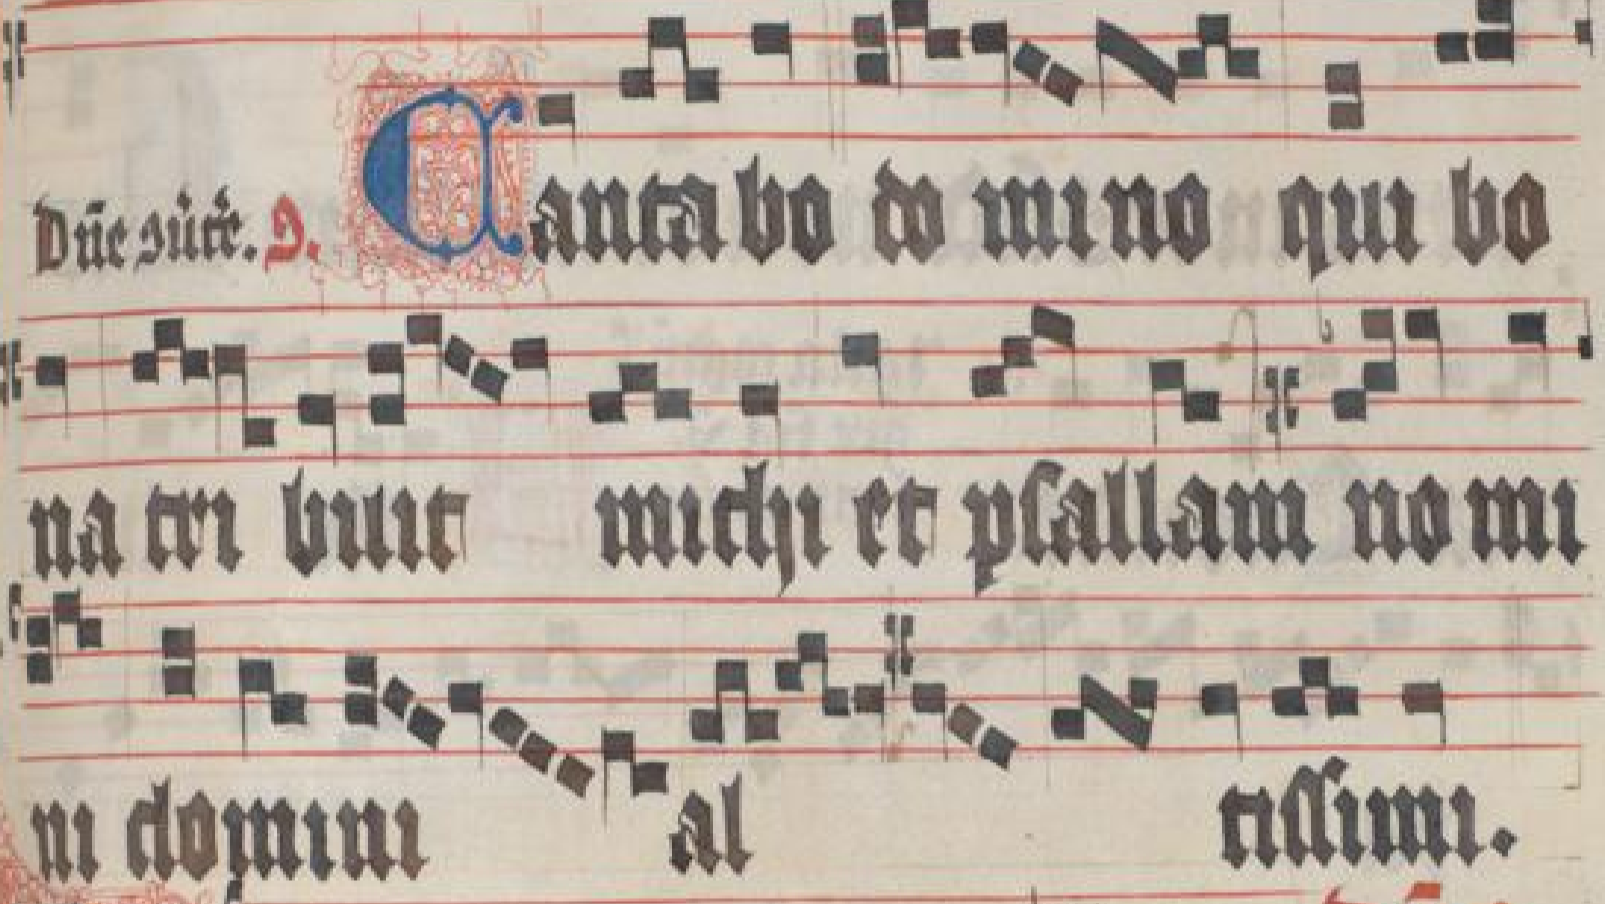 Dn̄e sic̄ut. Ꝯ. Cantabo domino qui bo
na tribuit michi et psallam nomi
ni domini altissimi.